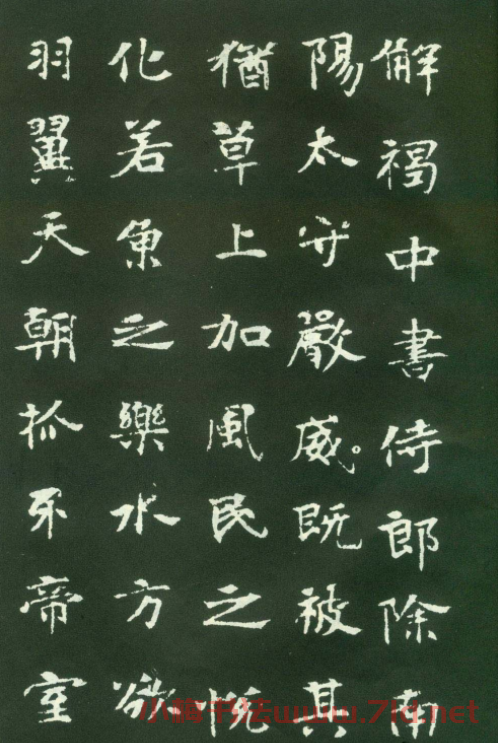 解褐中書侍郎除南
陽太守嚴威既被其
猶草上加風民之悅
化若魚之樂水方欲
羽翼天朝抓牙帝室
小梅书法www.7ld.net